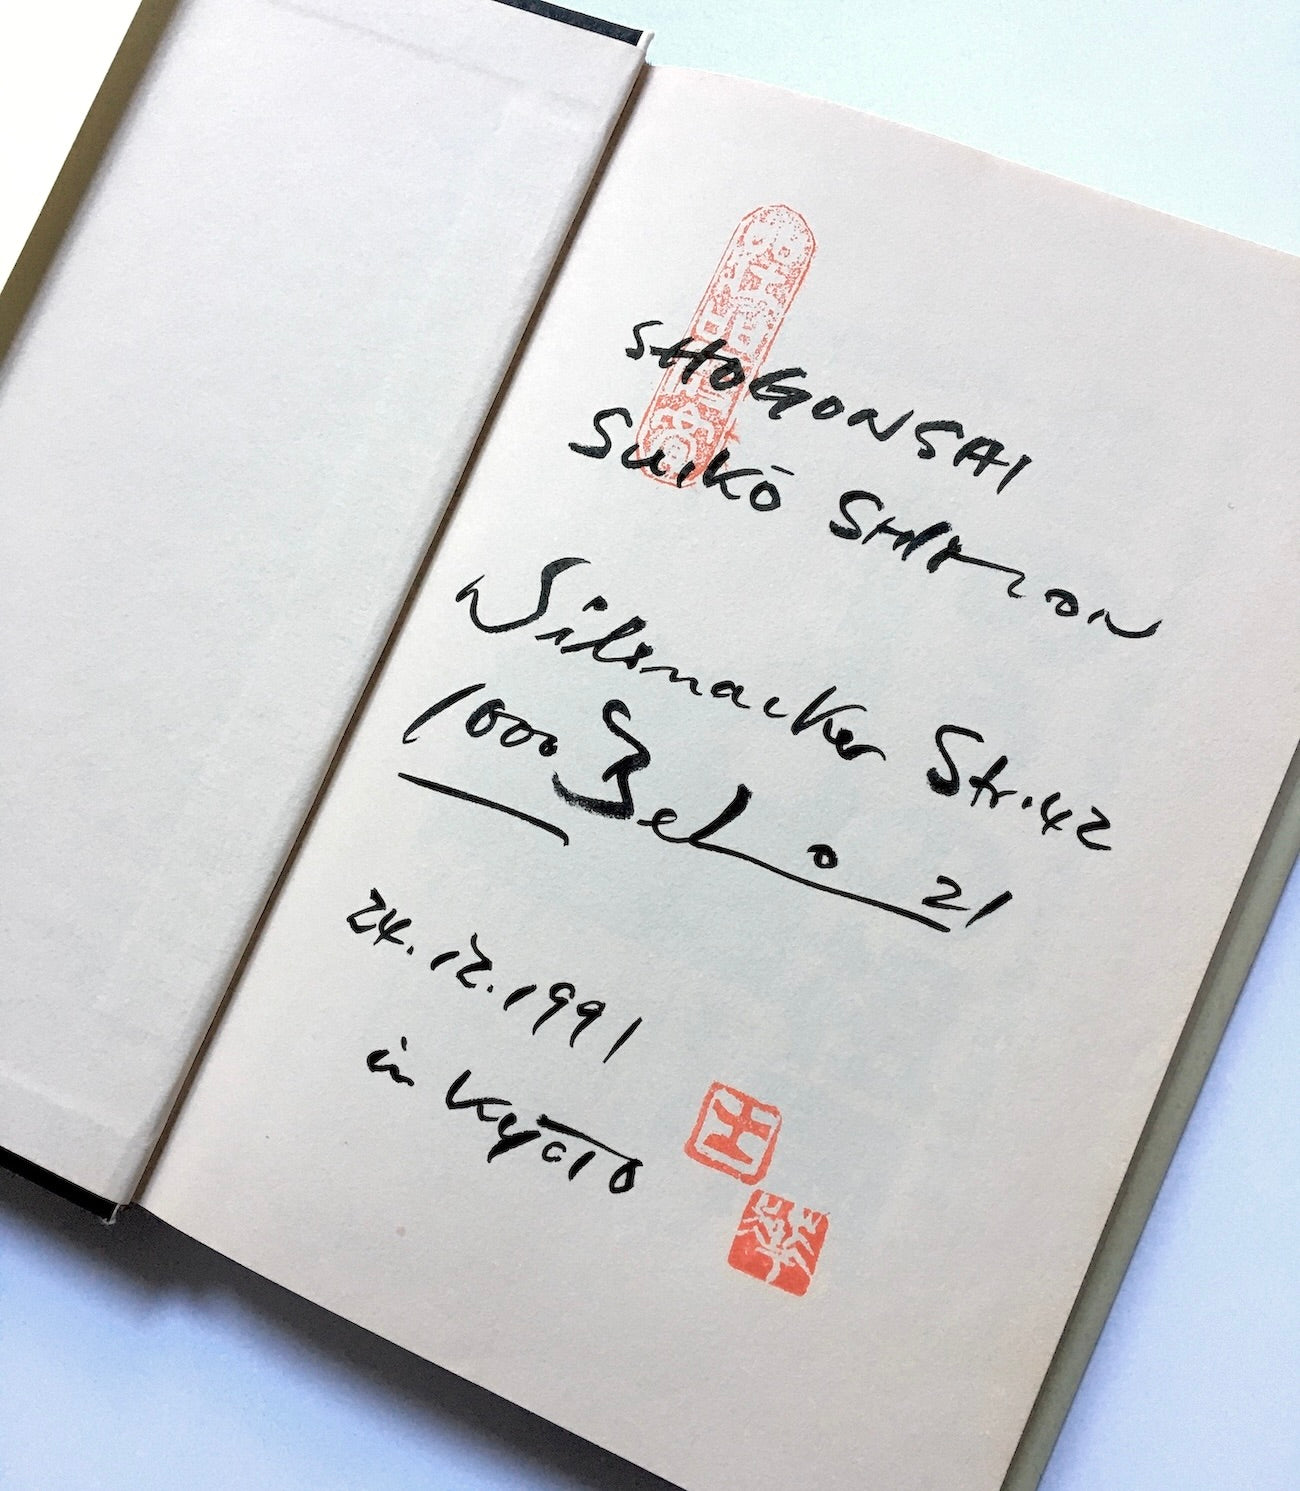 SHOGONSAI
Suikō SHARON
Wilsnacker Str. 42
1000 Berlin 21
24.12.1991
in Kyōto
王
華